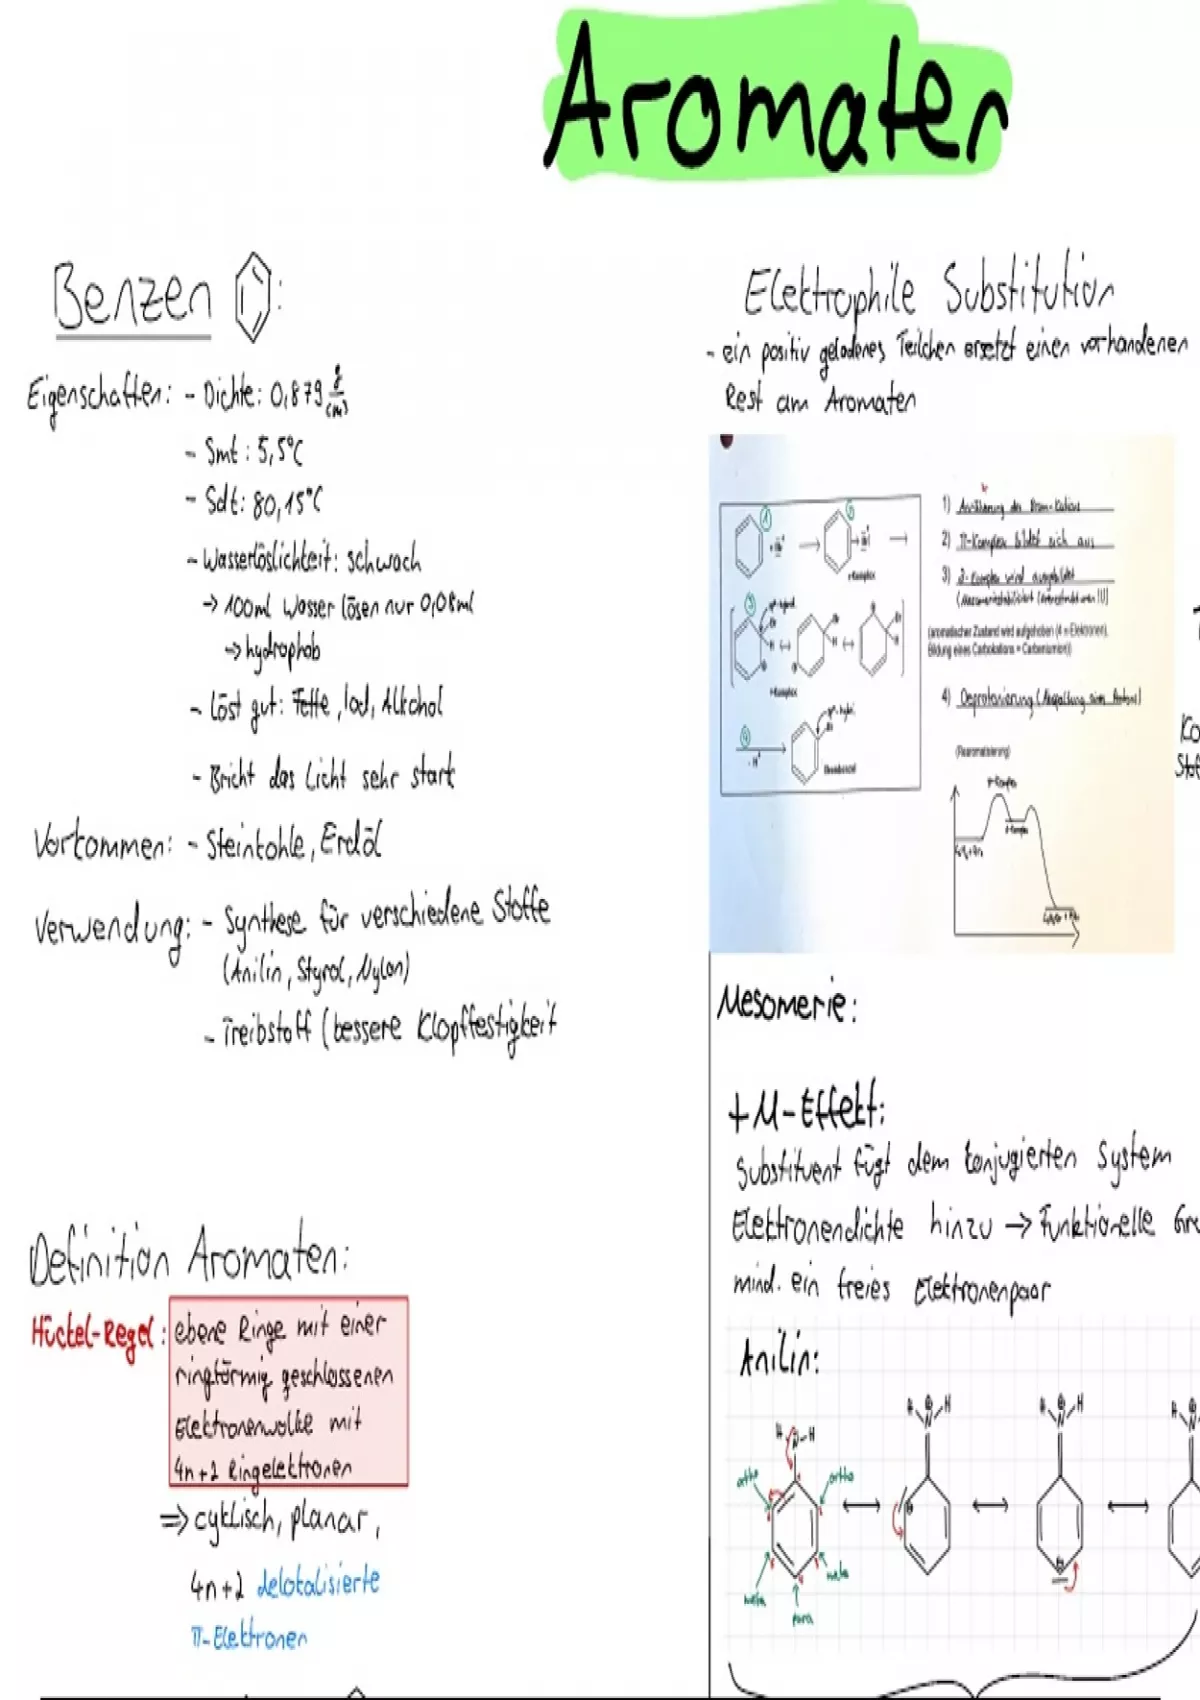 Aromaten
Benzen :
Eigenschaften: - Dichte: 0,879 g/cm³
- Smt: 5,5°C
- Sdt: 80,15°C
- Wasserlöslichkeit: schwach
→ 100ml Wasser lösen nur 0,08ml
→ hydrophob
- Löst gut: Fette, Iod, Alkohol
- Bricht das Licht sehr stark
Vorkommen: - Steinkohle, Erdöl
Verwendung: - Synthese für verschiedene Stoffe
(Anilin, Styrol, Nylon)
- Treibstoff (bessere Klopffestigkeit
Definition Aromaten:
Hückel-Regel: ebene Ringe mit einer
ringförmig geschlossenen
Elektronenwolke mit
4n+2 Ringelektronen
⇒ cyklisch, planar,
4n+2 delokalisierte
π-Elektronen
Elektrophile Substitution
- ein positiv geladenes Teilchen ersetzt einen vorhandenen
Rest am Aromaten
1) Annäherung des Brom-Kations
2) π-Komplex bildet sich aus
3) σ-Komplex wird ausgebildet
(aromatischer Zustand wird aufgehoben (4 π Elektronen),
Bildung eines Carbokations = Carbeniumion))
4) Deprotonierung (Abspaltung eines Protons)
(Rearomatisierung)
Ko
Sto
Mesomerie:
+M-Effekt:
Substituent fügt dem konjugierten System
Elektronendichte hinzu → Funktionelle Gru
mind. ein freies Elektronenpaar
Anilin:
H N-H
ortho ortho
meta meta
para
H N H
H N H
H N